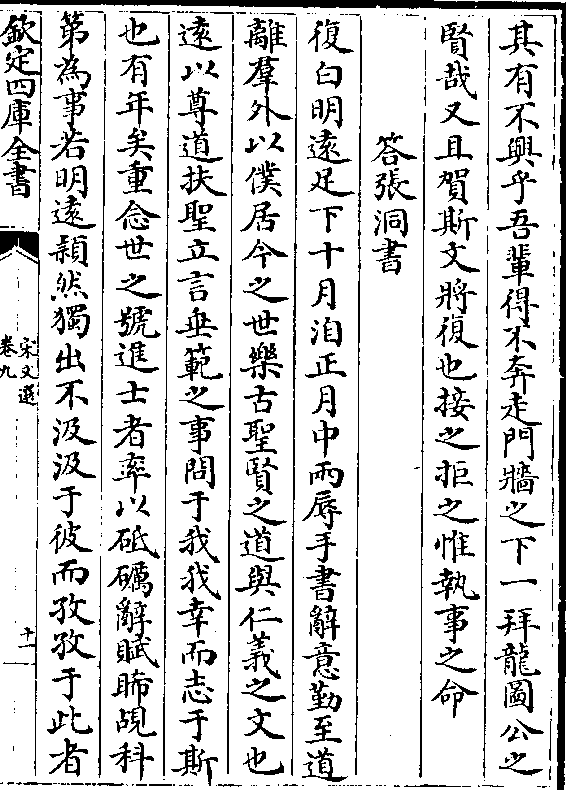 其有不興乎吾輩得不奔走門牆之下一拜龍圖公之
賢哉又且賀斯文將復也接之拒之惟執事之命
答張洞書
復白明遠足下十月洎正月中兩辱手書辭意勤至道
離羣外以僕居今之世樂古聖賢之道與仁義之文也
遠以尊道扶聖立言垂範之事問于我我幸而志于斯
也有年矣重念世之號進士者率以砥礪辭賦睎覬科
第為事若明遠穎然獨出不汲汲于彼而孜孜于此者
欽定四庫全書
宋文選
卷九
十一